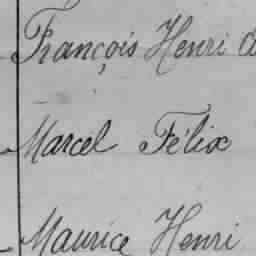 François Henri
Marcel Félix
Maurice Henri